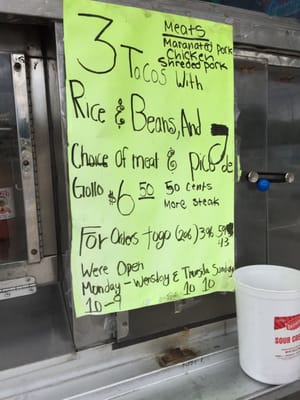 Meats
Maranated pork
Chicken
shreded pork
3 Tacos With
Rice & Beans, And
Choice of meat & pico de
Gallo $6 50 50 cents
More steak
For Orders to go (206) 398
Were Open
Monday - Wensday & Thursda Sunday
10 - 9 10 10
SOUR CRE